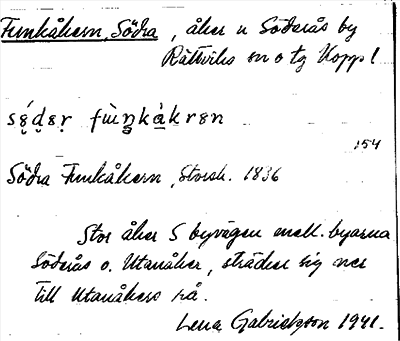 Funkåkern, Södra, åker u Söderås by
Rättviks sn o tg Kopp l
sɛ́dɛr fùŋkàkrɛn
154
Södra Funkåkern, Storsk. 1836
Stor åker S byvägen mell. byarna
Söderås o. Utanåker, sträcker sig ner
till Utanåkers
Lena Gabrielsson 1941.